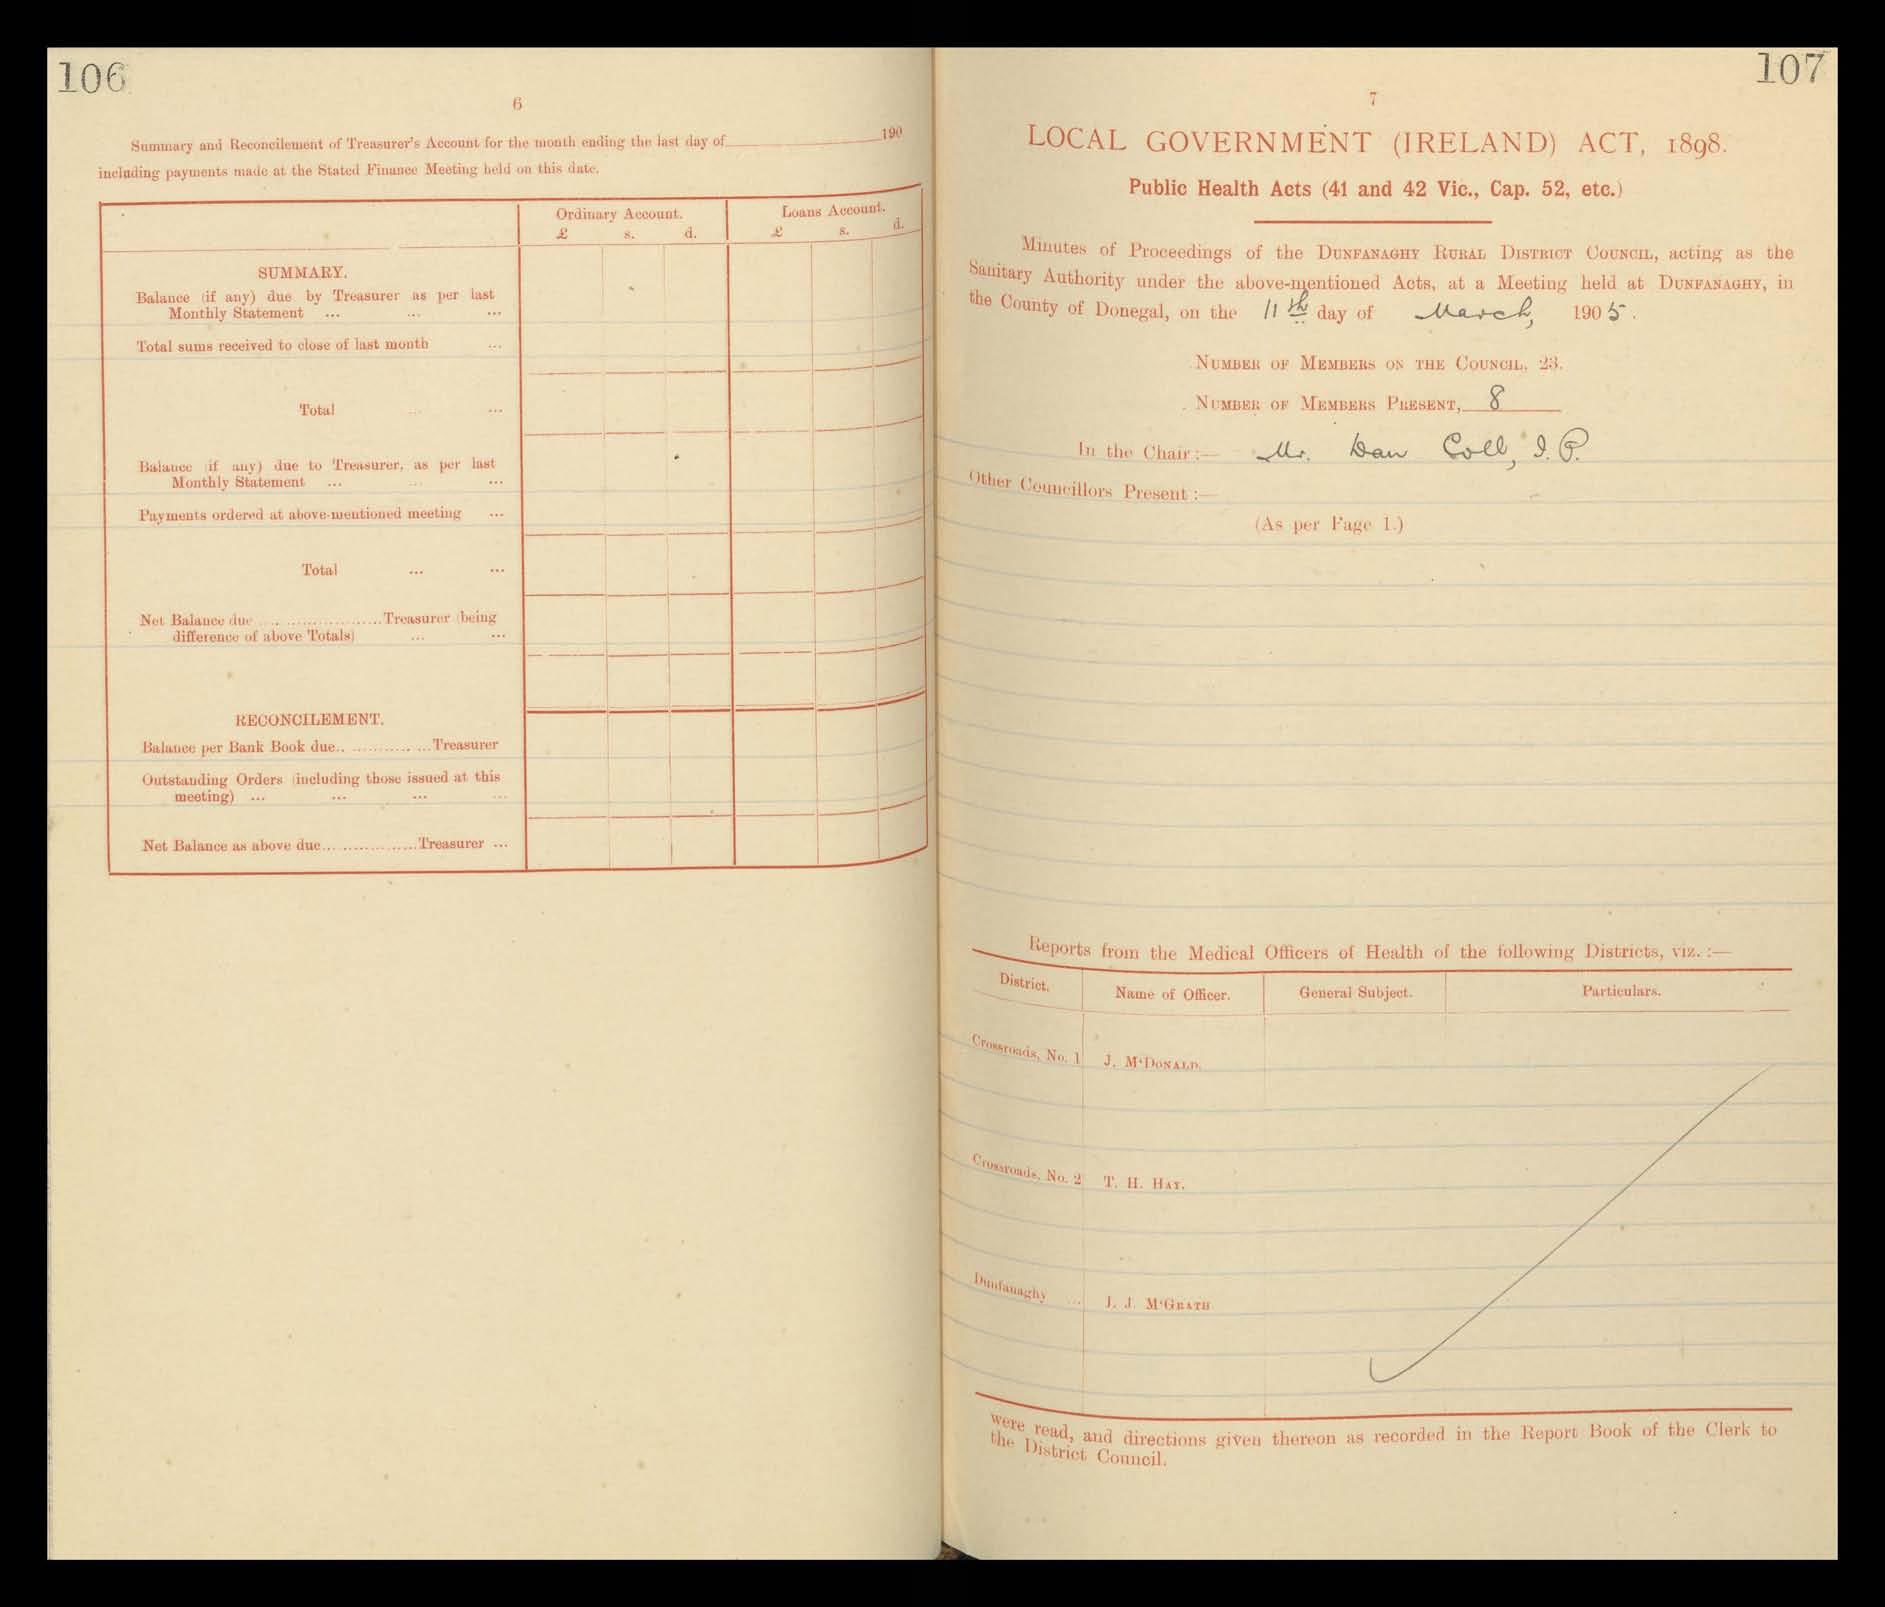 106
6
Summary and Reconcilement of Treasurer's Account for the month ending the last day of 190
including payments made at the Stated Finance Meeting held on this date.
Ordinary Account. Loans Account.
£ s. d. £ s. d.
SUMMARY.
Balance (if any) due by Treasurer as per last
Monthly Statement ... ... ...
Total sums received to close of last month ...
Total ... ...
Balance (if any) due to Treasurer, as per last
Monthly Statement ... ... ...
Payments ordered at above-mentioned meeting ...
Total ... ...
Net Balance due ........................ Treasurer (being
difference of above Totals) ... ...
RECONCILEMENT.
Balance per Bank Book due.. ................Treasurer
Outstanding Orders (including those issued at this
meeting) ... ... ... ...
Net Balance as above due...................Treasurer ...
107
7
LOCAL GOVERNMENT (IRELAND) ACT, 1898.
Public Health Acts (41 and 42 Vic., Cap. 52, etc.)
Minutes of Proceedings of the DUNFANAGHY RURAL DISTRICT COUNCIL, acting as the
Sanitary Authority under the above-mentioned Acts, at a Meeting held at DUNFANAGHY, in
the County of Donegal, on the 11th day of March, 1905.
NUMBER OF MEMBERS ON THE COUNCIL, 23.
NUMBER OF MEMBERS PRESENT, 8
In the Chair:— Mr. Dan Coll, J.P.
Other Councillors Present:—
(As per Page 1.)
Reports from the Medical Officers of Health of the following Districts, viz.:—
District. Name of Officer. General Subject. Particulars.
Crossroads, No. 1 J. M'DONALD.
Crossroads, No. 2 T. H. HAY.
Dunfanaghy ... J. J. M'GRATH
were read, and directions given thereon as recorded in the Report Book of the Clerk to
the District Council.